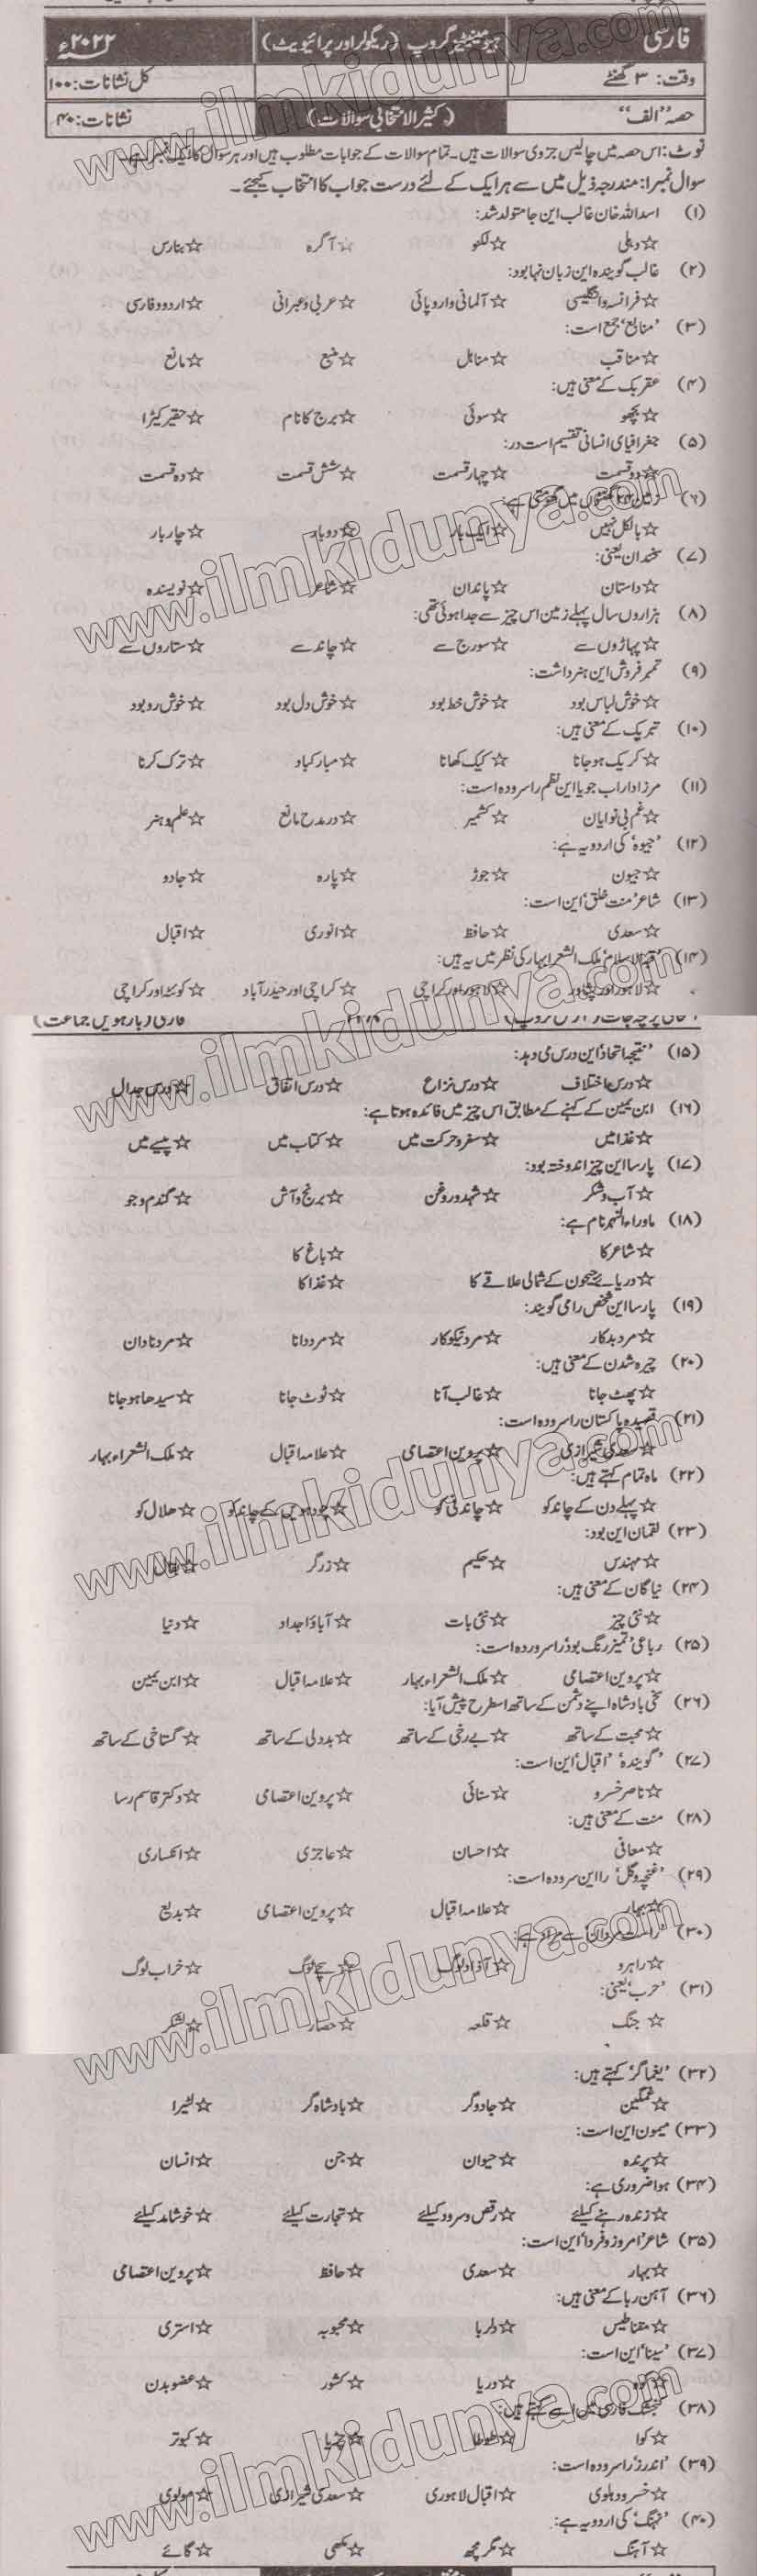 فارسی ہیومینٹیز گروپ (ریگولر اور پرائیویٹ) ۲۰۲۲ء
وقت: ۳ گھنٹے کل نشانات: ۱۰۰
حصہ "الف" (کثیر الانتخابی سوالات) نشانات: ۴۰
نوٹ: اس حصہ میں چالیس جزوی سوالات ہیں۔ تمام سوالات کے جوابات مطلوب ہیں اور ہر سوال کا ایک نمبر ہے۔
سوال نمبر۱: مندرجہ ذیل میں سے ہر ایک کے لئے درست جواب کا انتخاب کیجئے۔
(۱) اسد اللہ خان غالب این جا متولد شد:
☆ دہلی ☆ لکنو ☆ آگرہ ☆ بنارس
(۲) غالب گویندہ این زبان نہا بود:
☆ فرانسہ و انگلیسی ☆ آلمانی و اروپائی ☆ عربی و عبرانی ☆ اردو و فارسی
(۳) 'منابع' جمع است:
☆ مناقب ☆ مناہل ☆ منبع ☆ مانع
(۴) عقربک کے معنی ہیں:
☆ بچھو ☆ سوئی ☆ برج کا نام ☆ حقیر کیڑا
(۵) جغرافیای انسانی تقسیم است در:
☆ دو قسمت ☆ چہار قسمت ☆ شش قسمت ☆ دہ قسمت
(۶) زمین ۲۴ گھنٹوں میں گھومتی ہے:
☆ بالکل نہیں ☆ ایک بار ☆ دو بار ☆ چار بار
(۷) سخندان یعنی:
☆ داستان ☆ پاندان ☆ شاعر ☆ نویسندہ
(۸) ہزاروں سال پہلے زمین اس چیز سے جدا ہوئی تھی:
☆ پہاڑوں سے ☆ سورج سے ☆ چاند سے ☆ ستاروں سے
(۹) تمبر فروش این ہنر داشت:
☆ خوش لباس بود ☆ خوش خط بود ☆ خوش دل بود ☆ خوش رو بود
(۱۰) تبریک کے معنی ہیں:
☆ کریک ہوجانا ☆ کیک کھانا ☆ مبارکباد ☆ ترک کرنا
(۱۱) مرزا داراب جویا این نظم را سرودہ است:
☆ غم بی نوایان ☆ کشمیر ☆ در مدح مانع ☆ علم و ہنر
(۱۲) 'جیوہ' کی اردو یہ ہے:
☆ جیون ☆ جوڑ ☆ پارہ ☆ جادو
(۱۳) شاعر 'منت خلق' این است:
☆ سعدی ☆ حافظ ☆ انوری ☆ اقبال
(۱۴) 'قبۃ الاسلام' ملک الشعرا بہار کی نظر میں یہ ہیں:
☆ لاہور اور پشاور ☆ لاہور اور کراچی ☆ کراچی اور حیدرآباد ☆ کوئٹہ اور کراچی
فارسی (بارہویں جماعت)
(۱۵) 'نتیجہ اتحاد' این درس می دہد:
☆ درس اختلاف ☆ درس نزاع ☆ درس اتفاق ☆ درس جدال
(۱۶) ابن یمین کے کہنے کے مطابق اس چیز میں فائدہ ہوتا ہے:
☆ غذا میں ☆ سفر و حرکت میں ☆ کتاب میں ☆ پیسے میں
(۱۷) پارسا این چیز اندوختہ بود:
☆ آب و شکر ☆ شہد و روغن ☆ برنج و آش ☆ گندم و جو
(۱۸) ماوراء النہر نام ہے:
☆ شاعر کا ☆ باغ کا
☆ دریائے جیحون کے شمالی علاقے کا ☆ غذا کا
(۱۹) پارسا این شخص را می گویند:
☆ مرد بدکار ☆ مرد نیکوکار ☆ مرد دانا ☆ مرد نادان
(۲۰) چیرہ شدن کے معنی ہیں:
☆ پھٹ جانا ☆ غالب آنا ☆ ٹوٹ جانا ☆ سیدھا ہوجانا
(۲۱) قصیدہ پاکستان را سرودہ است:
☆ سعدی شیرازی ☆ پروین اعتصامی ☆ علامہ اقبال ☆ ملک الشعراء بہار
(۲۲) ماہ تمام کہتے ہیں:
☆ پہلے دن کے چاند کو ☆ چاندنی کو ☆ چودہویں کے چاند کو ☆ ھلال کو
(۲۳) لقمان این بود:
☆ مہندس ☆ حکیم ☆ زرگر ☆ بقال
(۲۴) نیاگان کے معنی ہیں:
☆ نئی چیز ☆ نئی بات ☆ آباؤ اجداد ☆ دنیا
(۲۵) رباعی 'تمیز رنگ بو' را سرودہ است:
☆ پروین اعتصامی ☆ ملک الشعراء بہار ☆ علامہ اقبال ☆ ابن یمین
(۲۶) سخی بادشاہ اپنے دشمن کے ساتھ اسطرح پیش آیا:
☆ محبت کے ساتھ ☆ بے رخی کے ساتھ ☆ بددلی کے ساتھ ☆ گستاخی کے ساتھ
(۲۷) 'گویندہ' 'اقبال' این است:
☆ ناصر خسرو ☆ سنائی ☆ پروین اعتصامی ☆ دکتر قاسم رسا
(۲۸) منت کے معنی ہیں:
☆ معافی ☆ احسان ☆ عاجزی ☆ انکساری
(۲۹) 'غنچہ و گل' را این سرودہ است:
☆ بہار ☆ علامہ اقبال ☆ پروین اعتصامی ☆ بدیع
(۳۰) 'راست مردان' سے مراد ہے:
☆ راہرو ☆ آزاد لوگ ☆ سچے لوگ ☆ خراب لوگ
(۳۱) 'حرب' یعنی:
☆ جنگ ☆ قلعہ ☆ حصار ☆ لشکر
(۳۲) 'یغماگر' کہتے ہیں:
☆ غمگین ☆ جادوگر ☆ بادشاہ گر ☆ لٹیرا
(۳۳) میمون این است:
☆ پرندہ ☆ حیوان ☆ جن ☆ انسان
(۳۴) ہوا ضروری ہے:
☆ زندہ رہنے کیلئے ☆ رقص و سرود کیلئے ☆ تجارت کیلئے ☆ خوشامد کیلئے
(۳۵) شاعر 'امروز و فردا' این است:
☆ بہار ☆ سعدی ☆ حافظ ☆ پروین اعتصامی
(۳۶) آہن ربا کے معنی ہیں:
☆ مقناطیس ☆ دلربا ☆ محبوبہ ☆ استری
(۳۷) 'سینا' این است:
☆ کوہ ☆ دریا ☆ کشور ☆ عضو بدن
(۳۸) گنجشک فارسی میں اسے کہتے ہیں:
☆ کوا ☆ طوطا ☆ چڑیا ☆ کبوتر
(۳۹) 'اندرز' را سرودہ است:
☆ خسرو دہلوی ☆ اقبال لاہوری ☆ سعدی شیرازی ☆ مولوی
(۴۰) 'نہنگ' کی اردو یہ ہے:
☆ آہنگ ☆ مگرمچھ ☆ مکھی ☆ گائے
www.ilmkidunya.com